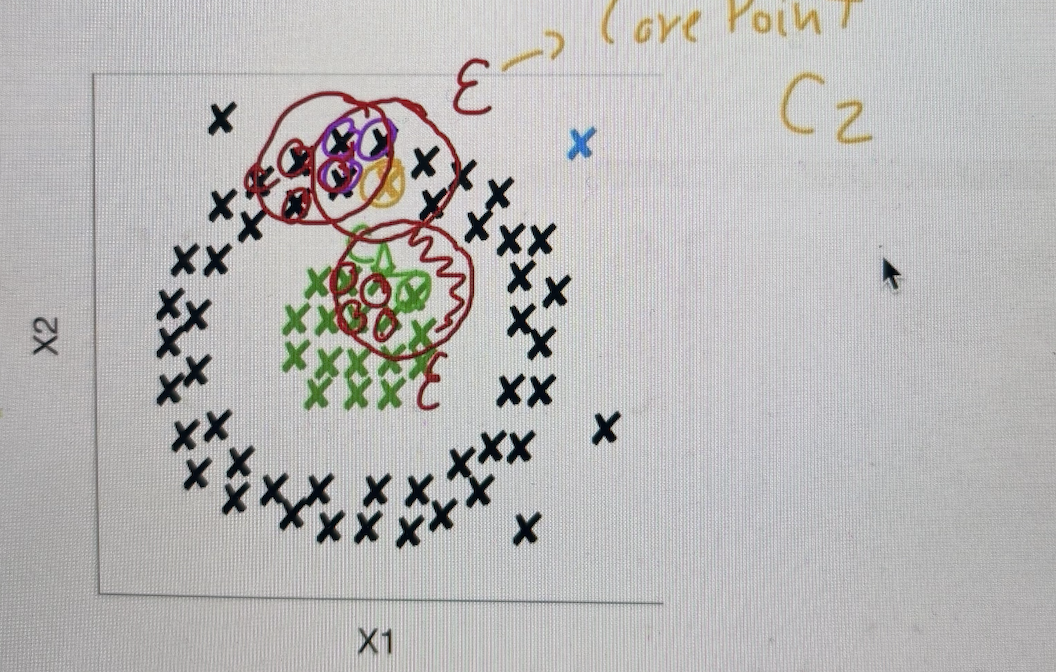 Core Point
ε
C2
C1
ε
X2
X1